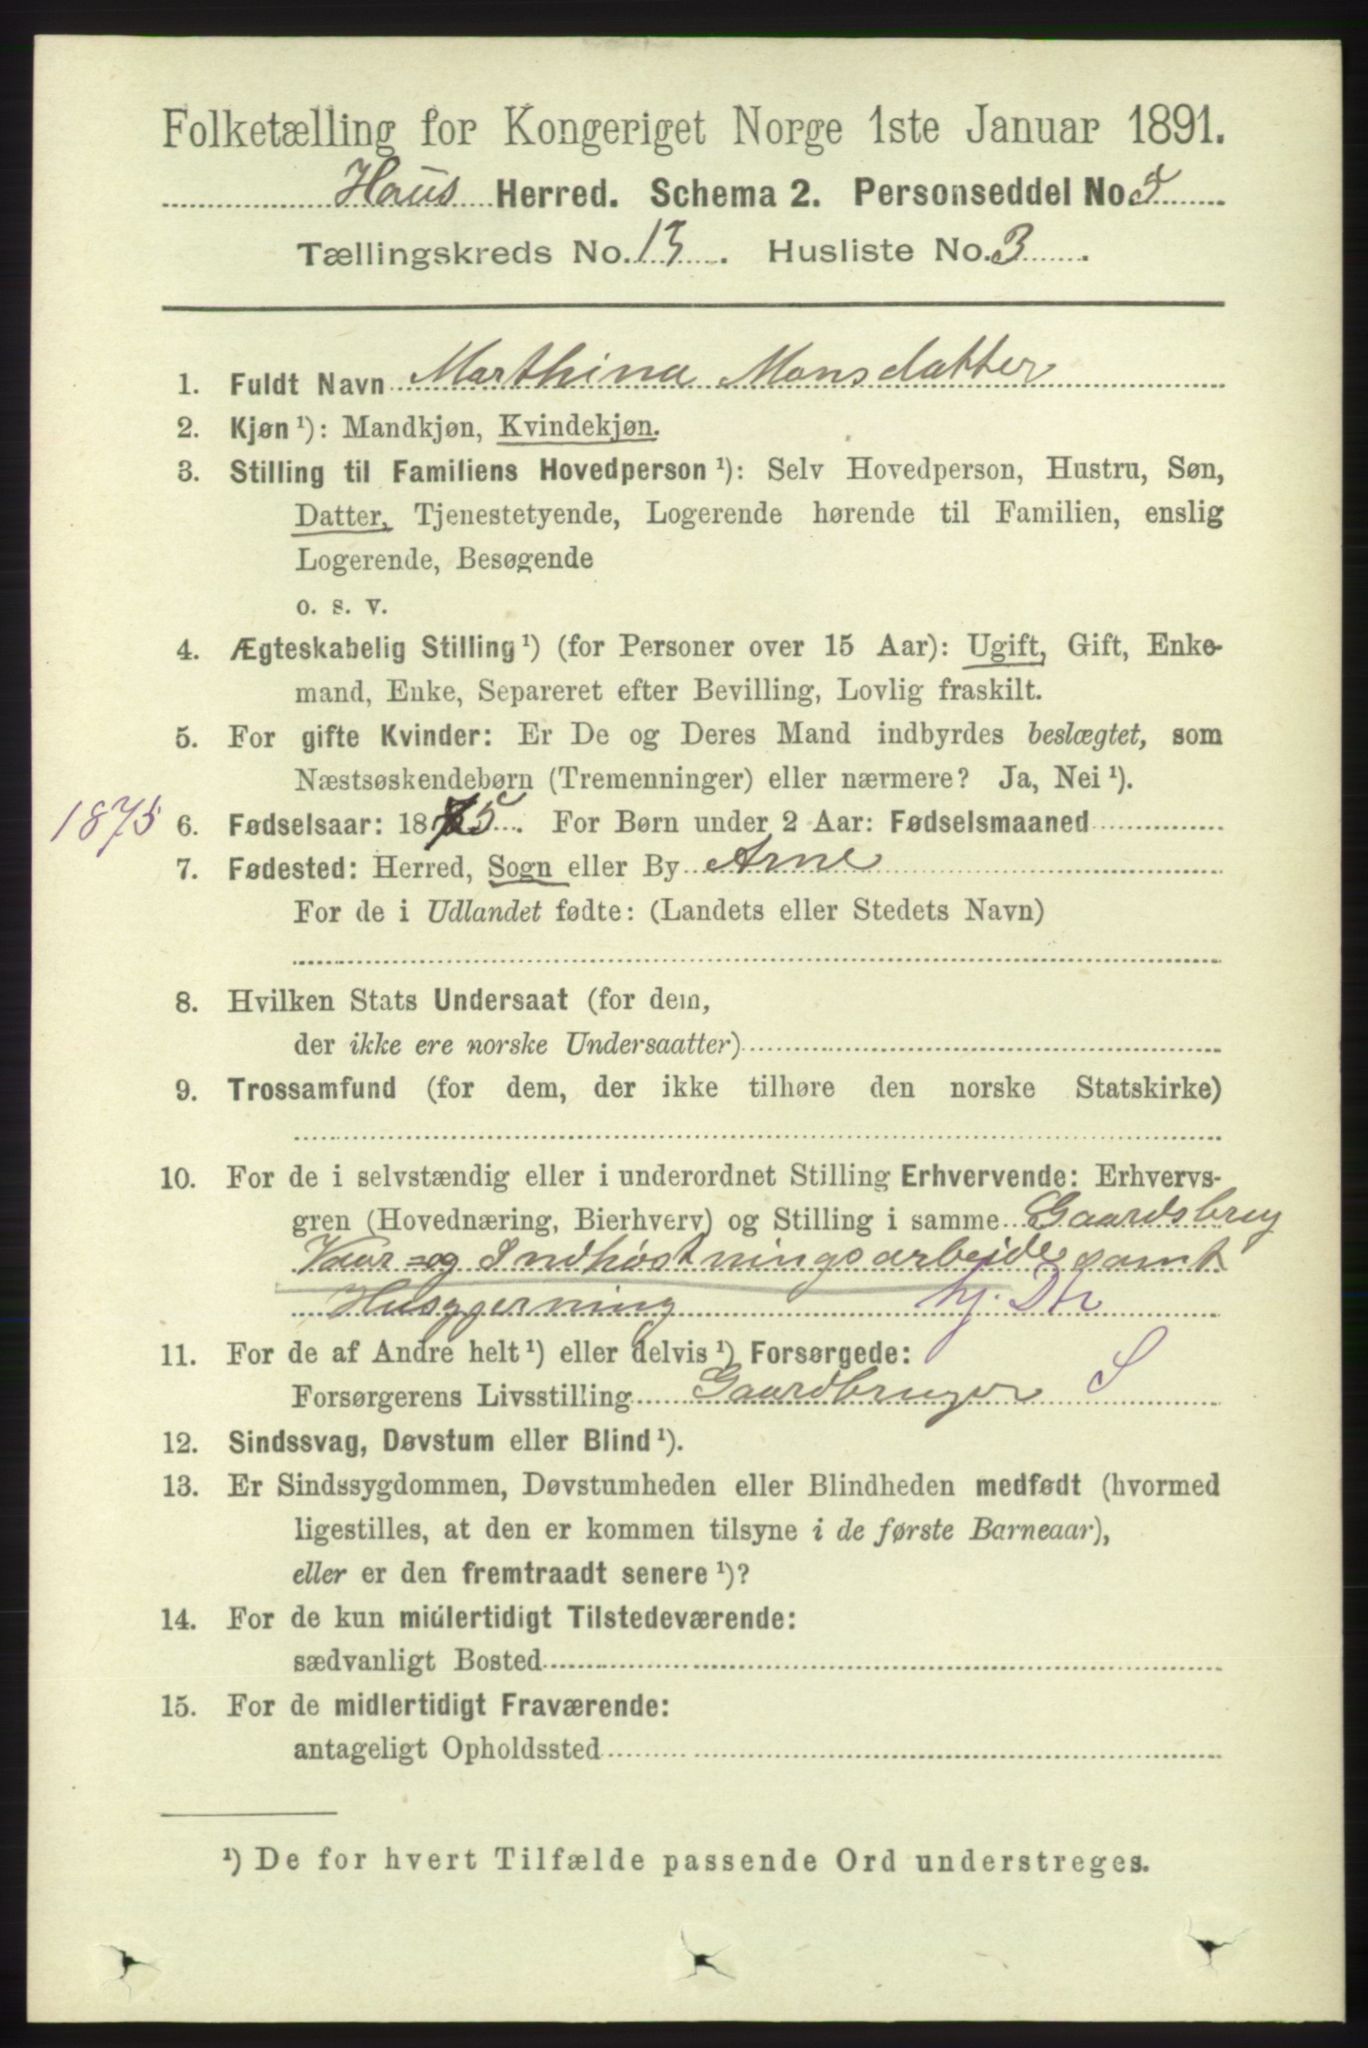 Folketælling for Kongeriget Norge 1ste Januar 1891.
Haus Herred. Schema 2. Personseddel No. 5
Tællingskreds No. 13. Husliste No. 3.
1. Fuldt Navn Marthina Monsdatter
2. Kjøn ¹): Mandkjøn, Kvindekjøn.
3. Stilling til Familiens Hovedperson ¹): Selv Hovedperson, Hustru, Søn,
Datter, Tjenestetyende, Logerende hørende til Familien, enslig
Logerende, Besøgende
o. s. v.
4. Ægteskabelig Stilling ¹) (for Personer over 15 Aar): Ugift, Gift, Enke-
mand, Enke, Separeret efter Bevilling, Lovlig fraskilt.
5. For gifte Kvinder: Er De og Deres Mand indbyrdes beslægtet, som
Næstsøskendebørn (Tremenninger) eller nærmere? Ja, Nei ¹).
1875 6. Fødselsaar: 1875. For Børn under 2 Aar: Fødselsmaaned
7. Fødested: Herred, Sogn eller By Arne
For de i Udlandet fødte: (Landets eller Stedets Navn)
8. Hvilken Stats Undersaat (for dem,
der ikke ere norske Undersaatter)
9. Trossamfund (for dem, der ikke tilhøre den norske Statskirke)
10. For de i selvstændig eller i underordnet Stilling Erhvervende: Erhvervs-
gren (Hovednæring, Bierhverv) og Stilling i samme Gaardsbrug
Vaar- og Indhøstningsarbeide samt
Husgjerning hj. Dtr
11. For de af Andre helt ¹) eller delvis ¹) Forsørgede:
Forsørgerens Livsstilling Gaardbruger S
12. Sindssvag, Døvstum eller Blind ¹).
13. Er Sindssygdommen, Døvstumheden eller Blindheden medfødt (hvormed
ligestilles, at den er kommen tilsyne i de første Barneaar),
eller er den fremtraadt senere ¹)?
14. For de kun midlertidigt Tilstedeværende:
sædvanligt Bosted
15. For de midlertidigt Fraværende:
antageligt Opholdssted
¹) De for hvert Tilfælde passende Ord understreges.